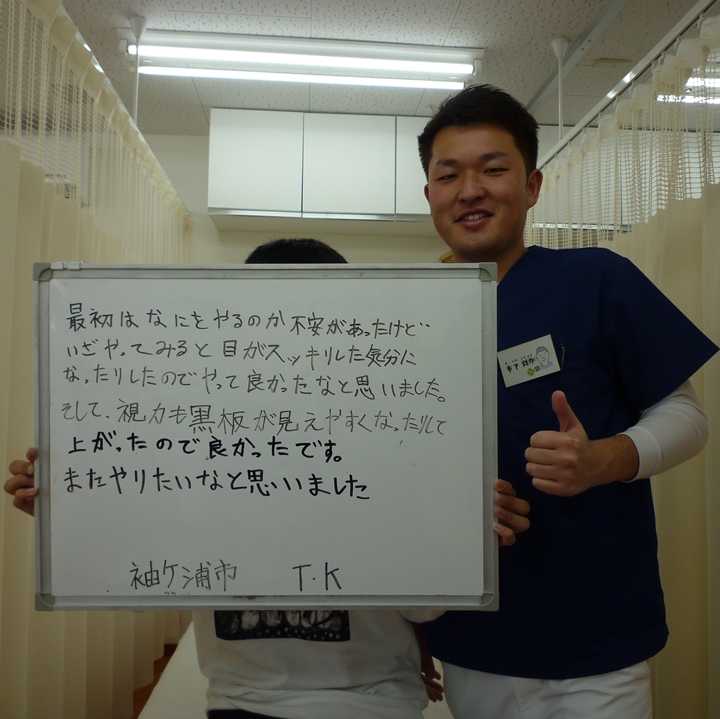 最初はなにをやるのか不安があったけど
いざやってみると目がスッキリした気分に
なったりしたのでやって良かったなと思いました。
そして、視力も黒板が見えやすくなったりして
上がったので良かったです。
またやりたいなと思いいました
袖ケ浦市 T.K